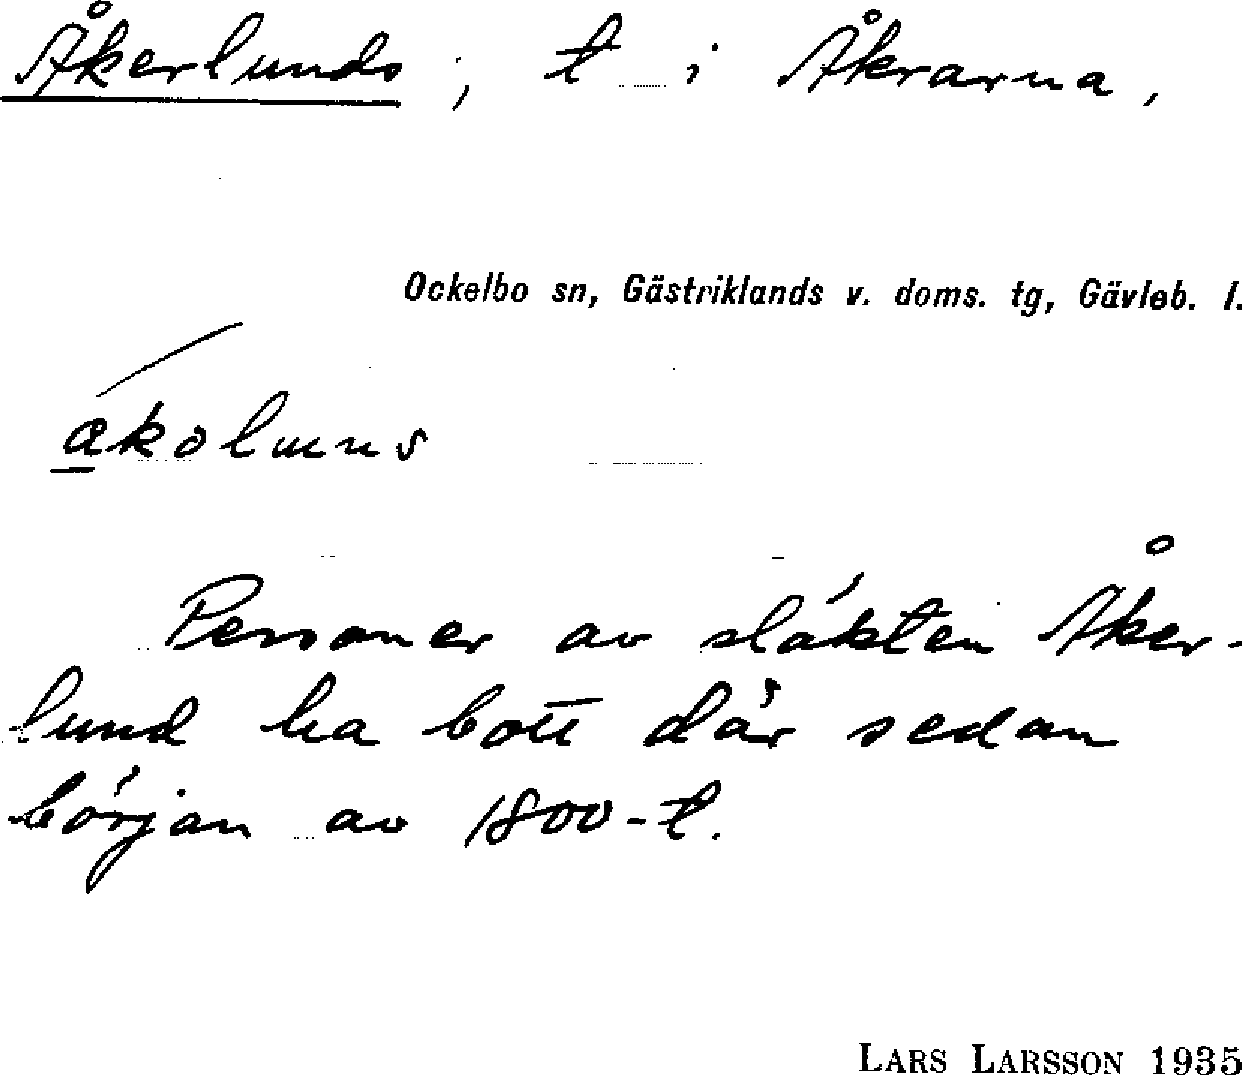 Åkerlunds ; t i Åkrarna,
Ockelbo sn, Gästriklands v. doms. tg, Gävleb. l.
ákolmns
Personer av släkten Åker-
lund ha bott där sedan
början av 1800-t.
LARS LARSSON 1935